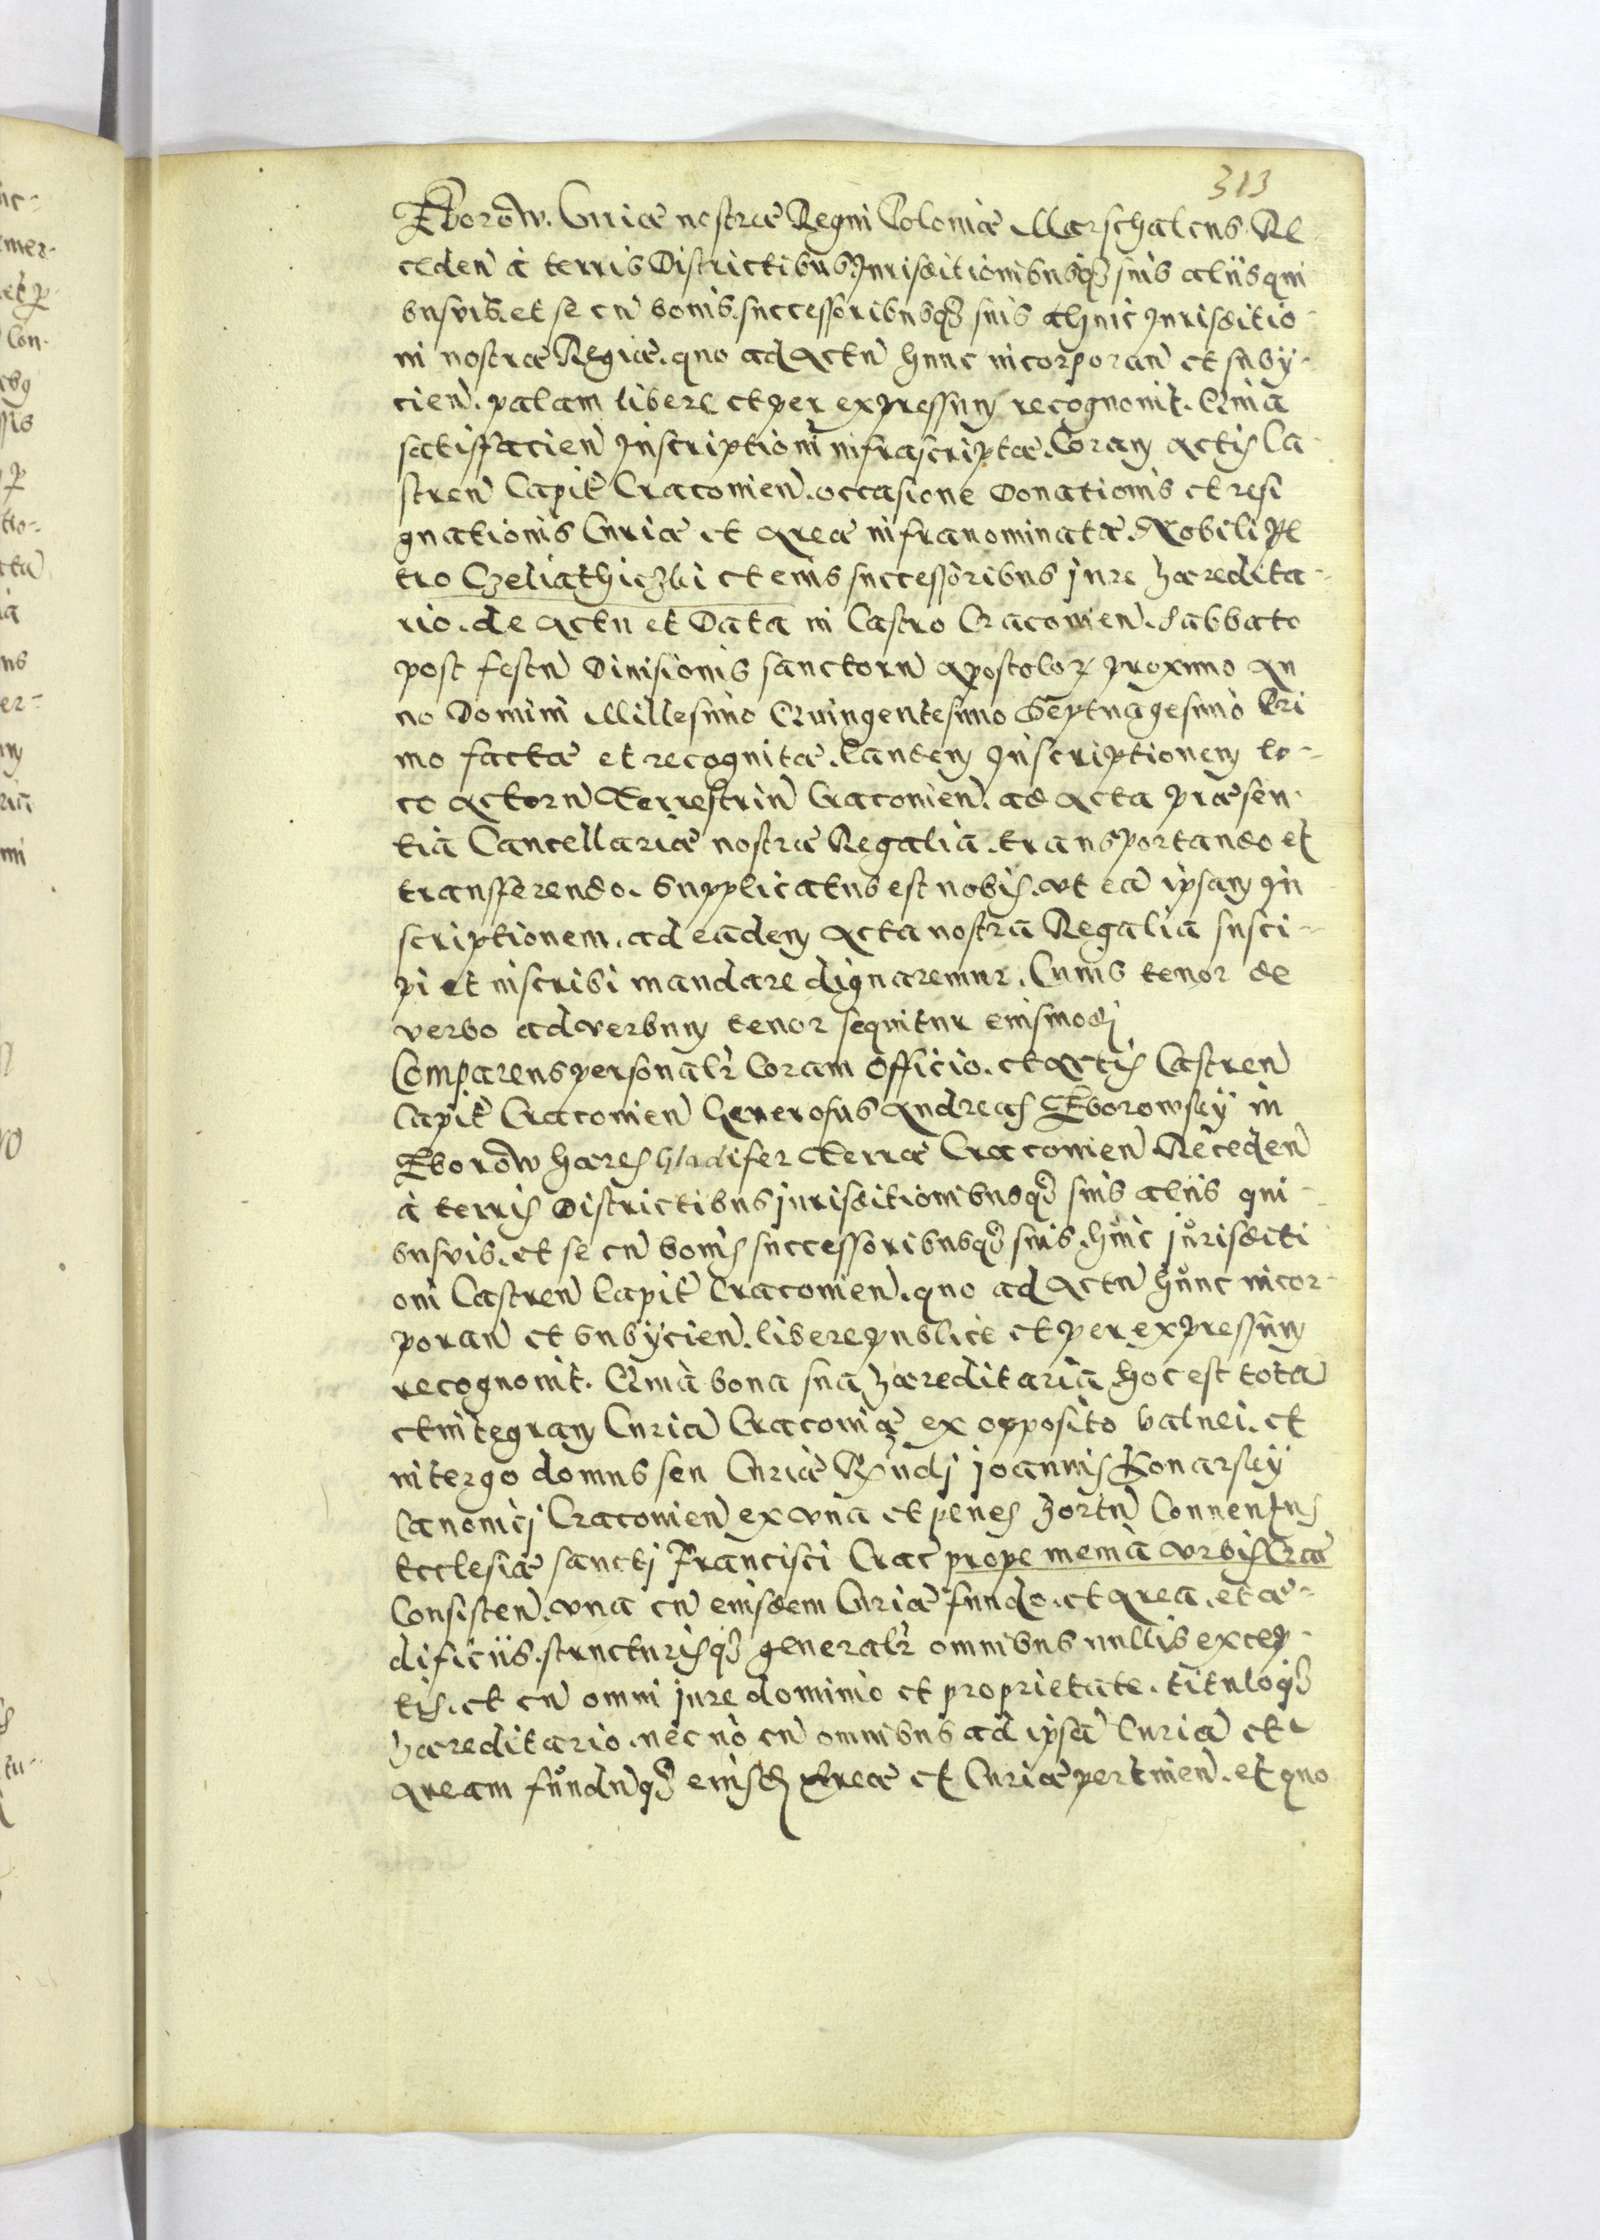 313
Zborow. Curiæ nostræ Regni Poloniæ Marschalcus. Re
ceden̄ à terris Districtibus Jurisditionibusq₃ suis alijs qui
busvis. et se cū bonis. successoribusq₃ suis ac huic Jurisditio-
ni nostræ Regiæ. quo ad Actū hunc incorporan̄ et subij-
cien̄. palam libere et per expressum recognouit. Quia
satisfacien̄ Inscriptioni infrascriptæ. Coram Actis Ca-
stren̄ Capit̄ Cracouien̄. occasione Donationis et resi
gnationis Curiæ et Areæ infranominatæ. Nobili Pe
tro Czeliathiczki et eius successoribus jure hæredita-
rio. de Actu et Data in Castro Cracouien̄. Sabbato
post festū Diuisionis sanctorū Apostoloꝝ proximo An
no Domini Millesimo Quingentesimo Septuagesimo Pri
mo facta et recognita. Eandem Inscriptionem lo-
co Actorū Terrestriū Cracouien̄. ad Acta præsen-
tia Cancellariæ nostræ Regalia. transportando et
transferendo. Supplicatus est nobis. vt eā ipsam In
scriptionem. ad eadem Acta nostra Regalia susci-
pi et inscribi mandare dignaremur. Cuius tenor de
verbo ad verbum tenor sequitur eiusmodi
Comparens personalr̄ Coram Officio. et Actis Castren̄
Capit̄ Cracouien̄ Generosus Andreas Zborowsky in
Zborow hæres Gladifer Terræ Cracouien̄ Receden̄
à terris Districtibus jurisditionibusq₃ suis alijs qui-
busvis. et se cū bonis successoribusq₃ suis. huic jurisdicti
oni Castren̄ Capit̄ Cracouien̄. quo ad Actū hunc incor-
poran̄ et subijcien̄. libere publice et per expressum
recognouit. Quia bona sua hæreditaria hoc est totā
et integram Curiā Cracouiæ ex opposito balnei. et
in tergo domus seu Curiæ Rn̄di Joannis Konarsky
Canonici Cracouien̄ ex vna et penes hortū Conuentus
Ecclesiæ sancti Francisci Crac̄ prope menia vrbis Cra
Consisten̄. vna cū eiusdem Curiæ fundo. et Area. et æ-
dificijs. structurisq₃ generalr̄ omnibus nullis excep-
tis. et cū omni jure dominio et proprietate. tituloq₃
hæreditario. nec nō cū omnibus ad ipsā Curiā et
Aream fundūq₃ eiusdem Areæ et Curiæ pertinen̄. et quo